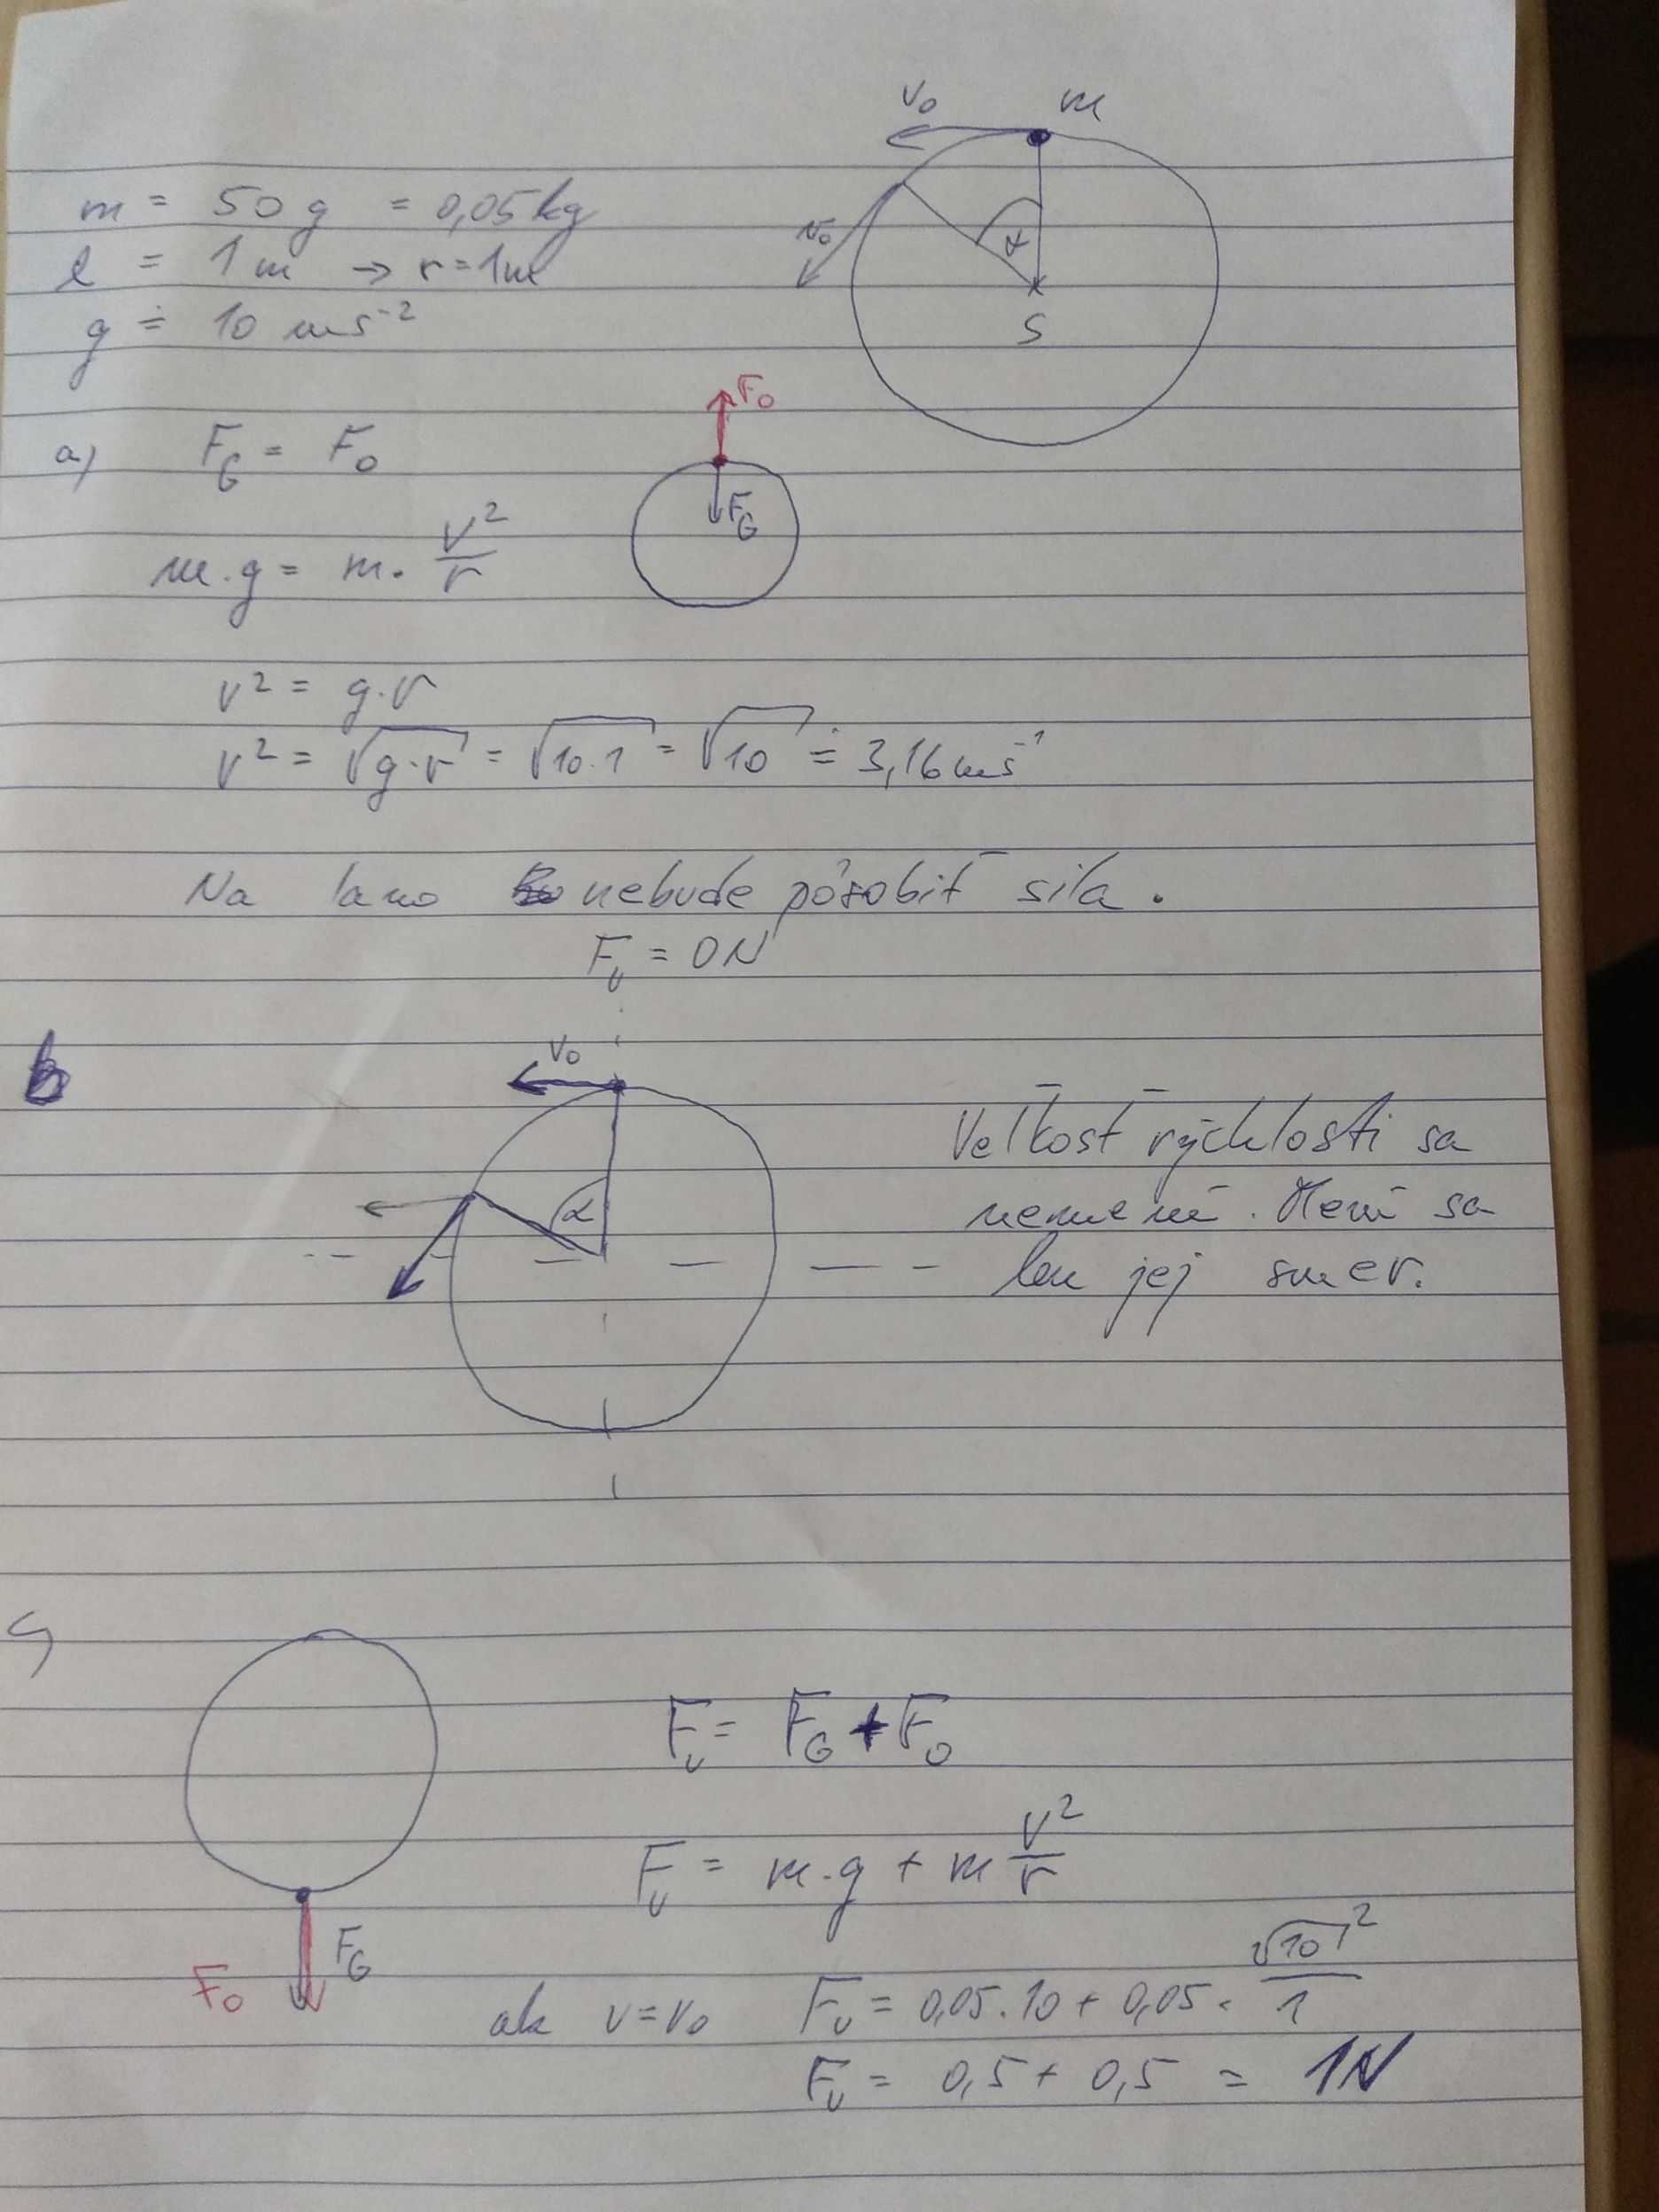 v₀ m
m = 50 g = 0,05 kg
l = 1 m → r = 1m
g ≐ 10 ms⁻²
v₀
α
S
a) F_G = F_o
F_o
F_G
m.g = m. v²/r
v² = g.r
v² = √g.r = √10.1 = √10 ≐ 3,16 ms⁻¹
Na lano nebude pôsobiť sila.
F_v = 0N
b
v₀
α
Veľkosť rýchlosti sa
nemení. Mení sa
len jej smer.
c)
F_v = F_G + F_o
F_v = m.g + m v²/r
F_o F_G
ak v = v₀ F_v = 0,05.10 + 0,05. √10²/1
F_v = 0,5 + 0,5 = 1N